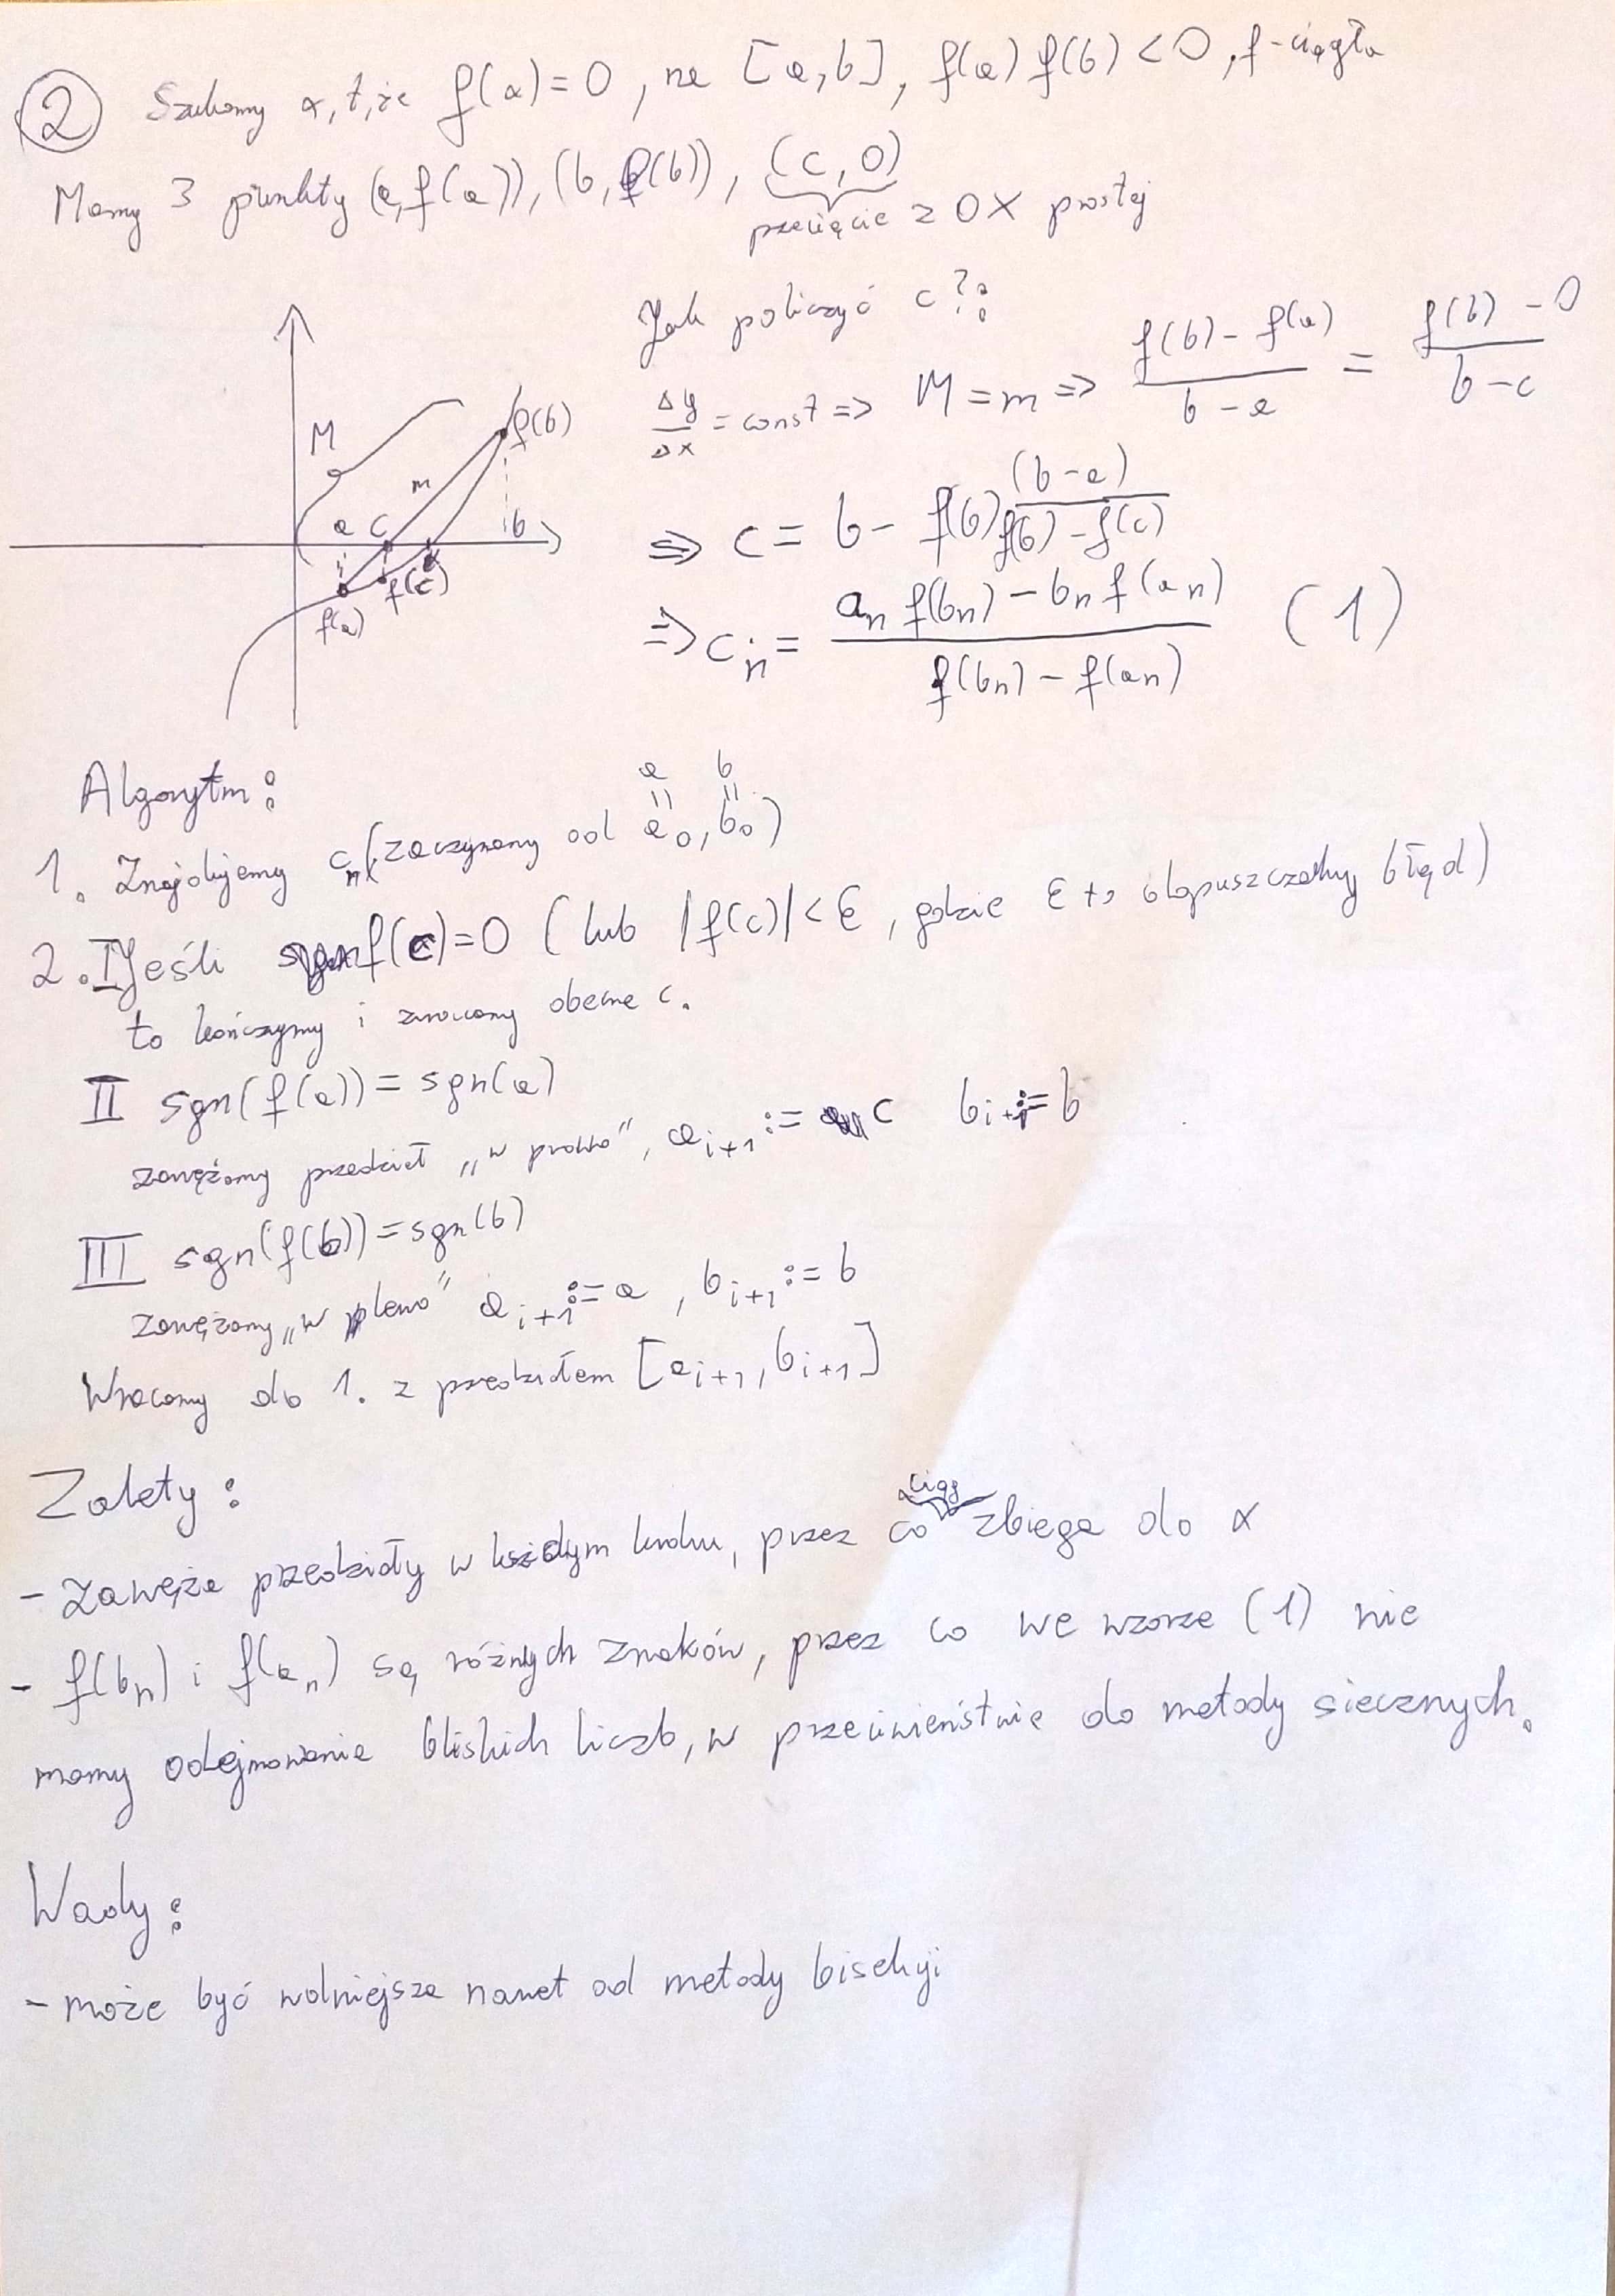 ② Szukamy α, t, że f(α)=0, na [a,b], f(a) f(b) <0, f-ciągła
Mamy 3 punkty (a,f(a)), (b,f(b)), (c,0)
przecięcie z OX prostej
Jak policzyć c?:
Δy/Δx = const => M=m => (f(b)-f(a))/(b-a) = (f(b)-0)/(b-c)
M
m
f(b)
a c b
f(a) f(c)
α
=> c = b - f(b) (b-a)/(f(b)-f(c))
=> c_n = (a_n f(b_n) - b_n f(a_n))/(f(b_n) - f(a_n)) (1)
Algorytm:
a b
= =
1. Znajdujemy c_n (zaczynamy od a_0, b_0)
2. I Jeśli f(c)=0 (lub |f(c)|<ε, gdzie ε to dopuszczalny błąd)
to kończymy i zwracamy obecne c.
II sgn(f(a)) = sgn(a)
zawężamy przedział „w prawo", a_{i+1} := c b_{i+1} := b
III sgn(f(b)) = sgn(b)
zawężamy „w lewo" a_{i+1} := a, b_{i+1} := b
Wracamy do 1. z przedziałem [a_{i+1}, b_{i+1}]
Zalety:
- Zawęża przedziały w każdym kroku, przez co ciąg zbiega do α
- f(b_n) i f(a_n) są różnych znaków, przez co we wzorze (1) nie
mamy odejmowania bliskich liczb, w przeciwieństwie do metody siecznych.
Wady:
- może być wolniejsza nawet od metody bisekcji